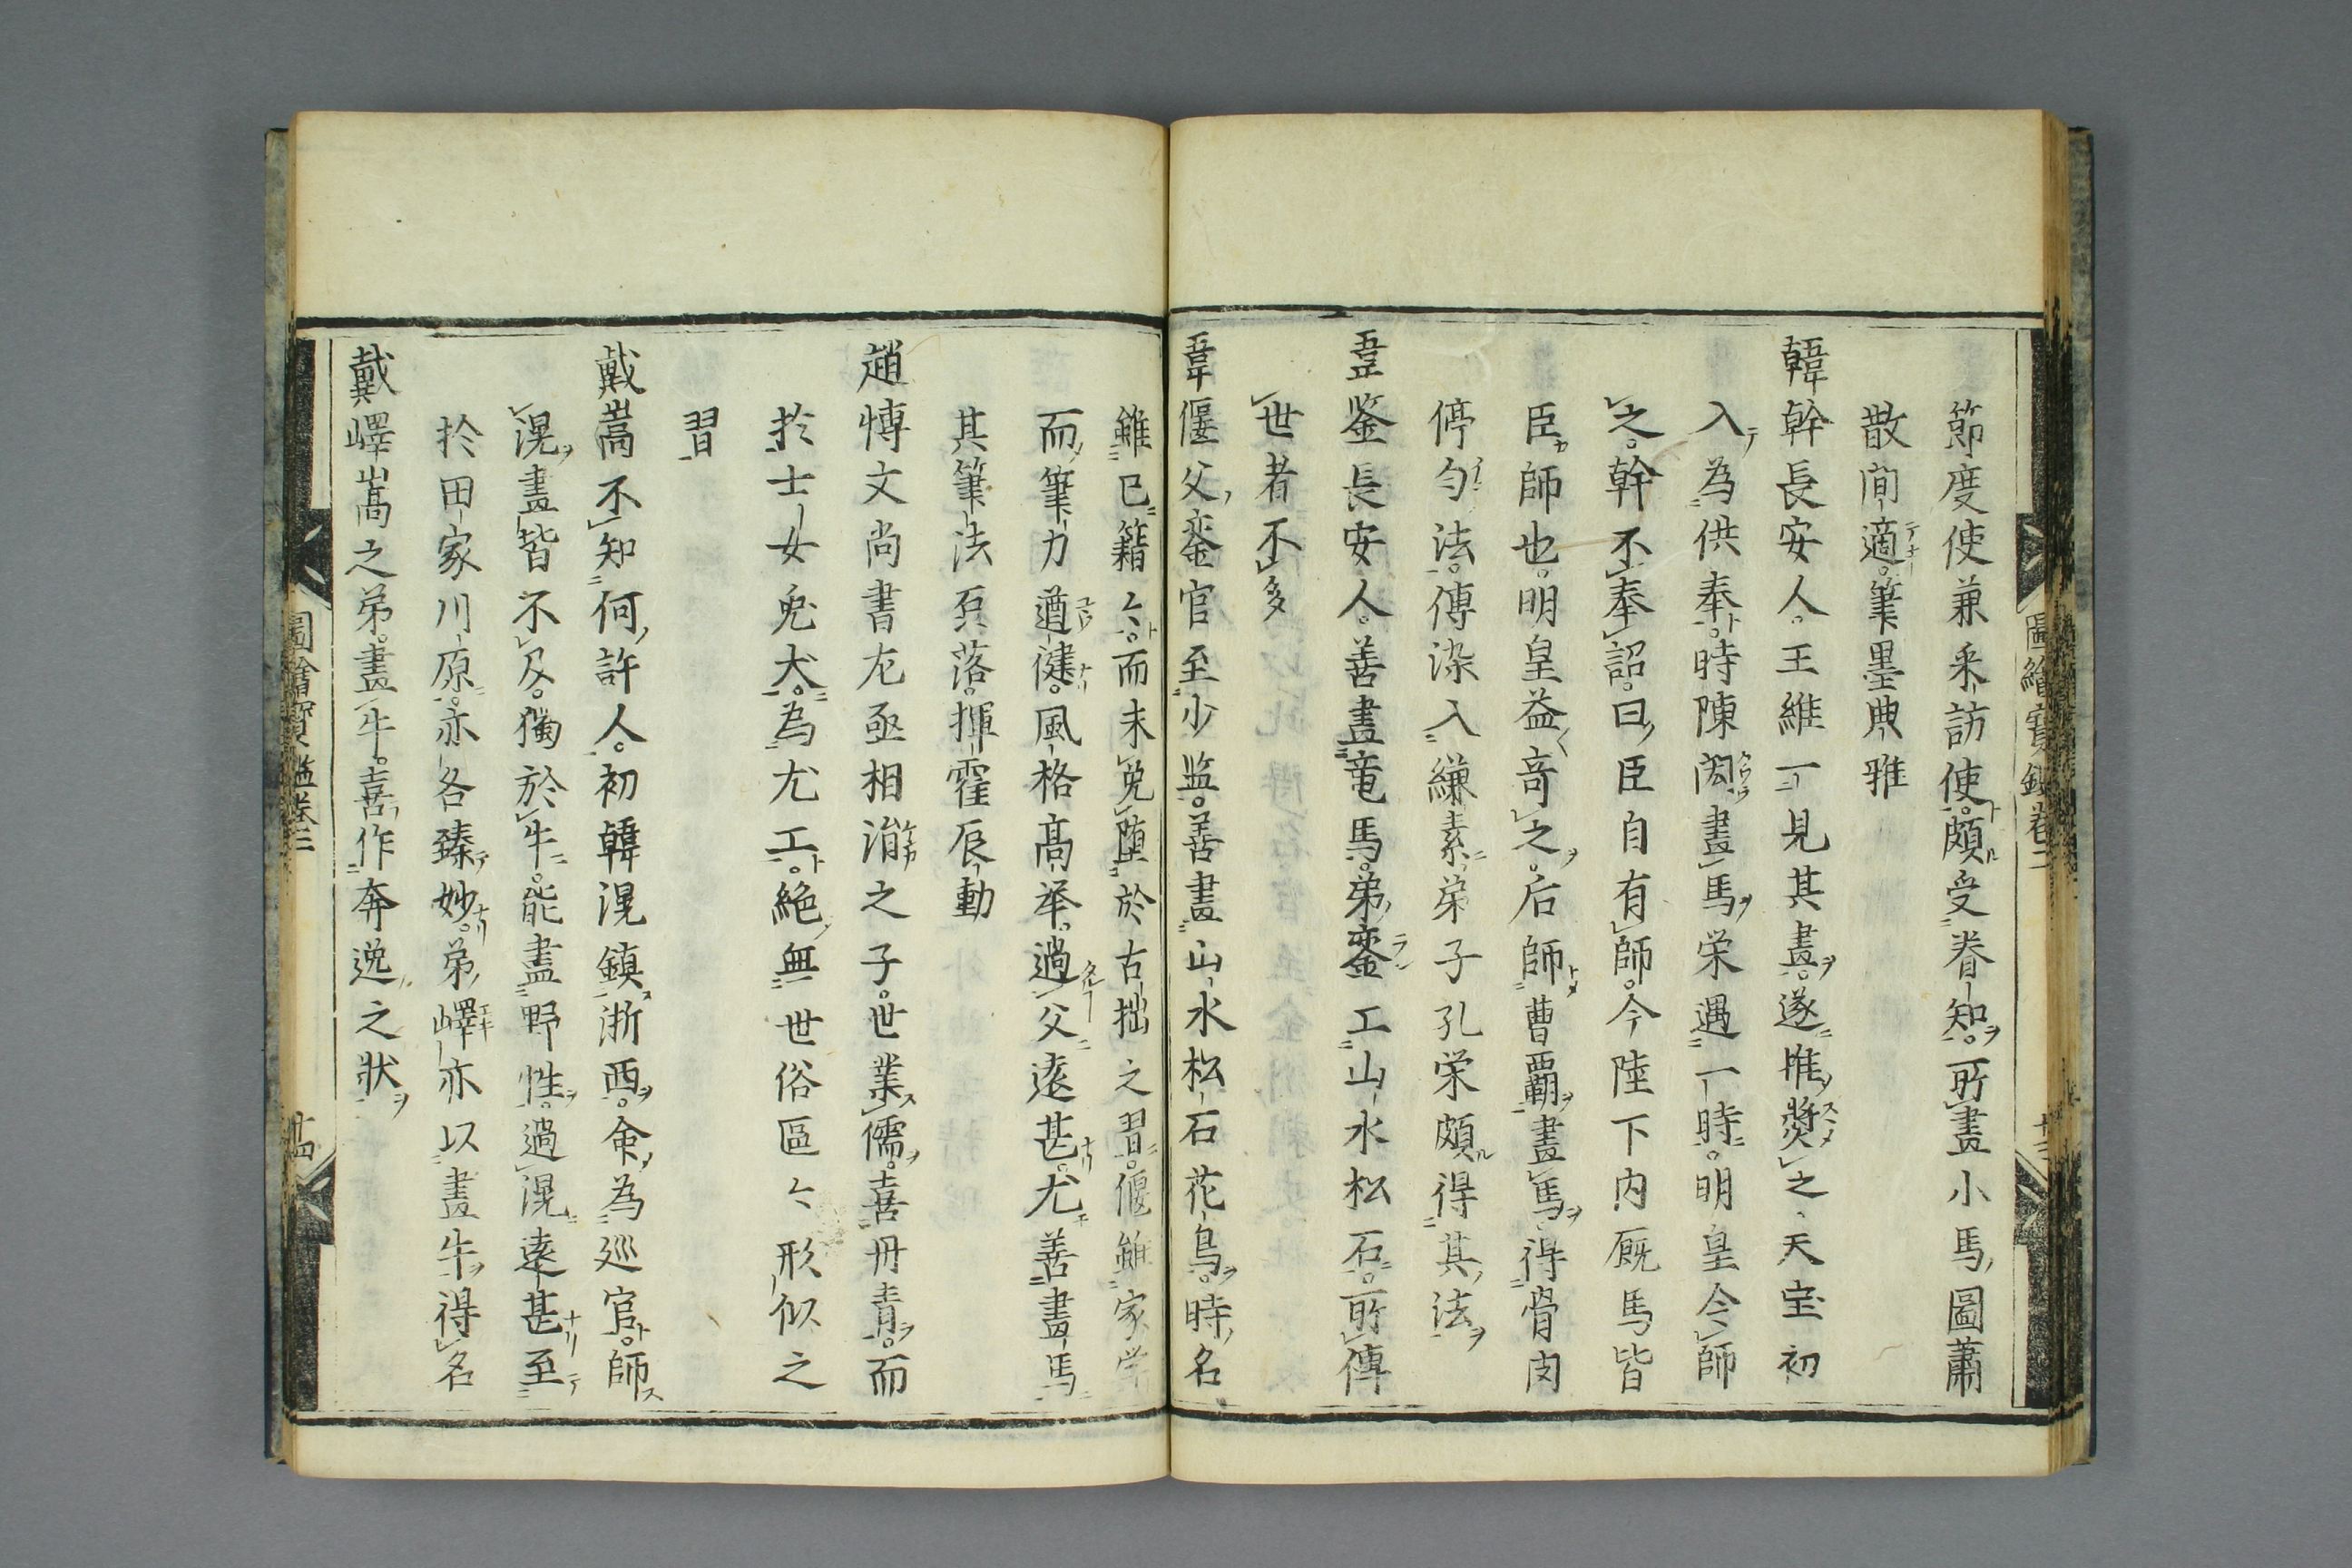 節度使兼釆訪使。頗受眷知。所畫小馬圖蕭
散間適。筆墨典雅
韓幹長安人。王維一見其畫。遂推奬之、天宝初
入為供奉。時陳閎畫馬栄遇一時。明皇令師
之。幹不奉詔。曰臣自有師。今陸下内厩馬皆
臣師也。明皇益奇之。后師曹覇畫馬得骨肉
停匀法。傳染入縑素弟子孔栄頗得其法
韋鉴長安人。善畫竜馬。弟銮工山水松石。所傳
世者不多
韋偃父銮官至少监。善畫山水松石花鳥。時名
雖已籍々。而未免堕於古拙之習。偃雖家学
而筆力遒健。風格高举。過父逺甚。尤善畫馬
其筆法磊落。揮霍辰動
趙慱文尚書左丞相涓之子。世業儒。喜丹青。而
扵士女兎犬。為尤工。絶無世俗區々形似之
習
戴嵩不知何許人。初韓滉鎮浙西。命為巡官。師
滉畫皆不及。獨於牛。能畫野性。過滉逺甚至
扵田家川原。亦各臻妙。弟嶧亦以畫牛得名
戴嶧嵩之弟。畫牛。喜作奔逸之狀
圖繪寳鑑巻二
圖繪寳鑑巻二
廿四